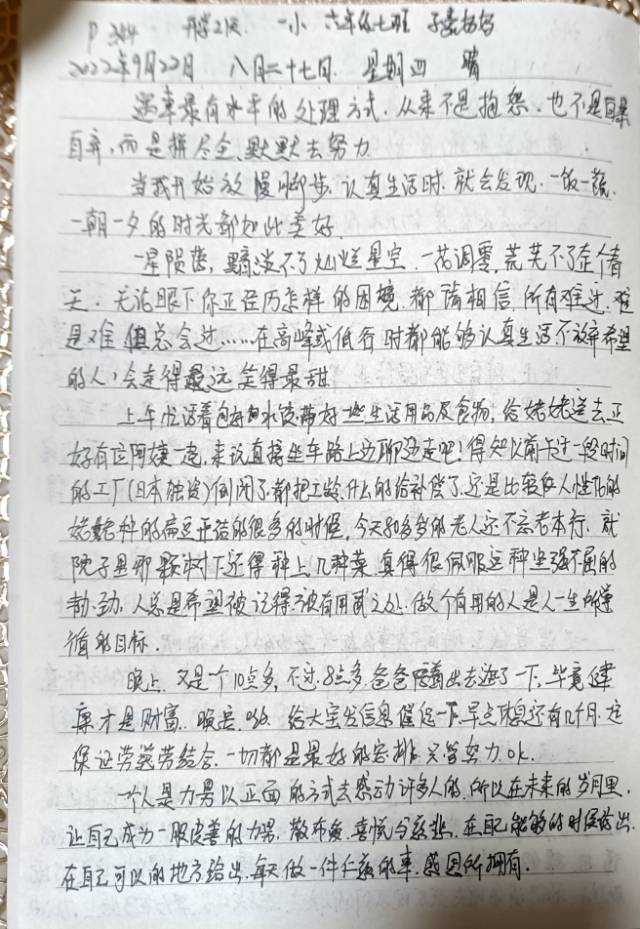 P 344 开学2天. 一小 六年级七班 子豪妈妈
2022年9月22日 八月二十七日. 星期四 晴
遇事最有水平的处理方式. 从来不是抱怨. 也不是自暴
自弃, 而是拼尽全, 默默去努力
当我开始放慢脚步. 认真生活时. 就会发现. 一饭一蔬.
一朝一夕的时光都如此美好.
一星陨落, 黯淡不了灿烂星空. 一花调零, 荒芜不了整个春
天. 无论眼下你正经历怎样的困境. 都请相信, 所有难过. 难
是难 但总会过……在高峰或低谷时都能够认真生活不放弃希望
的人, 会走得最远 笑得最甜
上午忙活着包好的水饺. 带好些生活用品及食物, 给姥姥送去. 正
好有应用姨一起, 来说直接坐车路上边聊边走吧! 得知以前干过一段时间
的工厂(日本独资)倒闭了. 都把工龄. 什么的给补偿了. 还是比较人性化的
姥姥种的扁豆开结的很多的时候, 今天80多岁的老人还不忘老本行. 就
院子里那颗树下还得种上几种菜. 真得很佩服这种坚强不屈的
韧劲. 人总是希望被记得. 被有用武之处. 做个有用的人是人一生所遵
循的目标.
晚上. 又是个10点多, 不过. 8点多. 爸爸陪着出去遛了一下, 毕竟健
康才是财富. 给大宝发信息催促一下. 早点休息还有几个月. 定
保证劳逸劳结合. 一切都是最好的安排. 只管努力. ok.
一个人是力男以正面的方式去感动许多人的, 所以在未来的岁月里,
让自己成为一股良善的力男. 散布爱. 喜悦与慈悲, 在自己能够的时候给出.
在自己可以的地方给出. 每天做一件仁慈的事. 感恩所拥有.